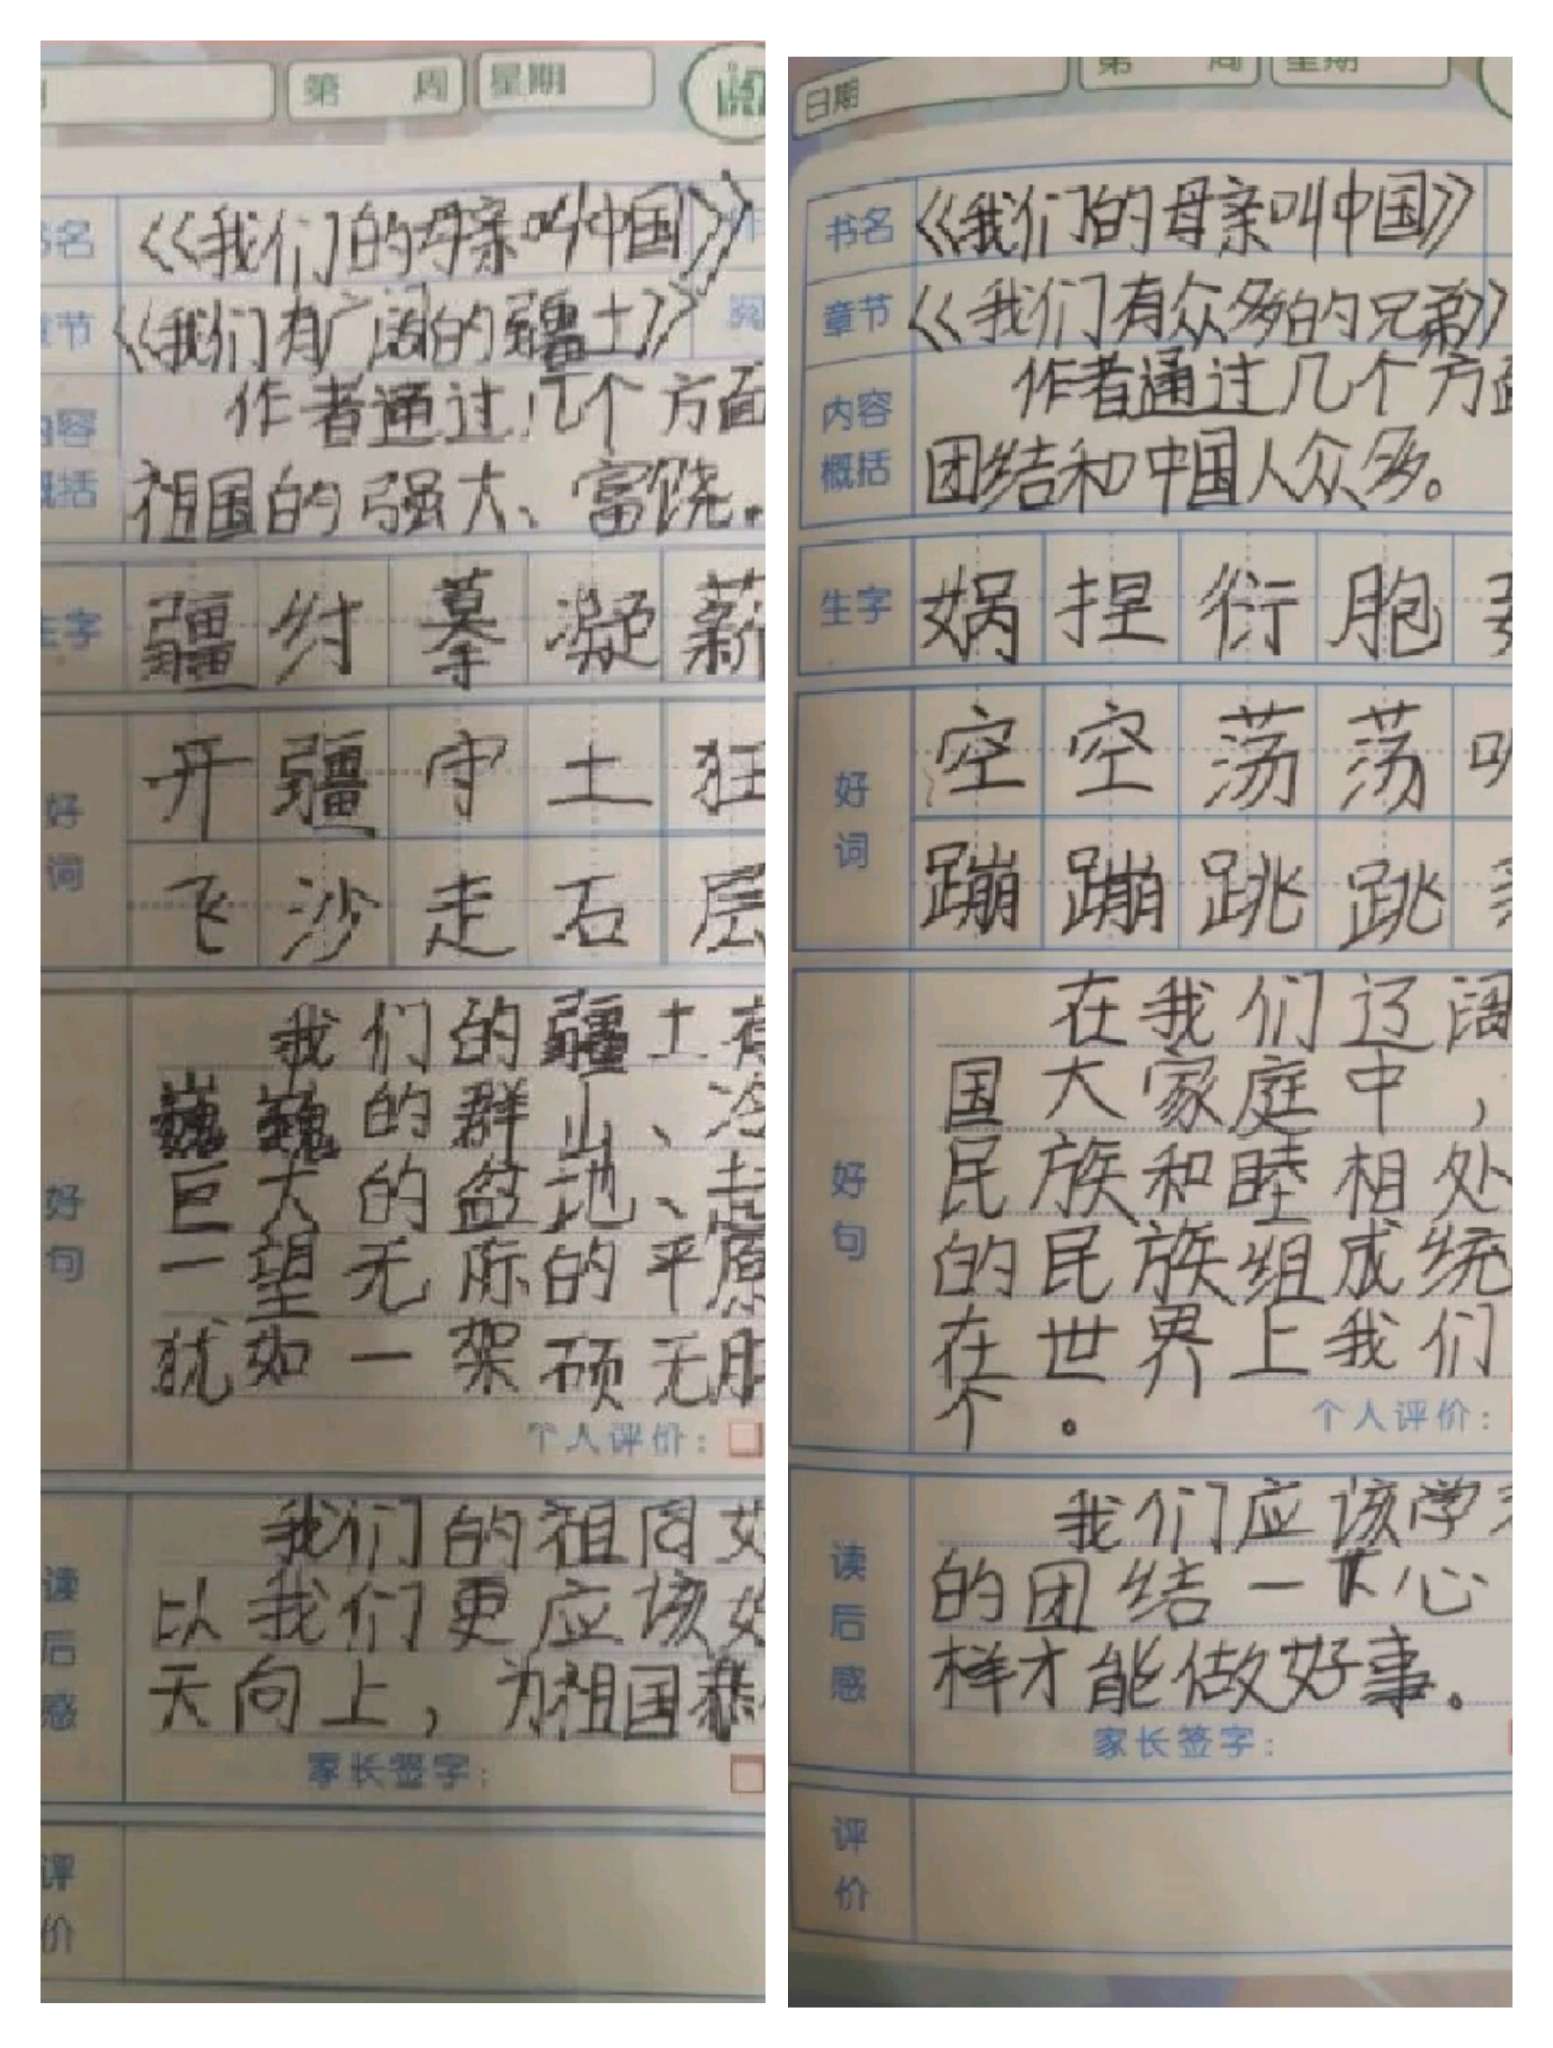 第 周 星期
书名 《我们的母亲叫中国》
章节 《我们有广阔的疆土》
内容概括 作者通过几个方面
祖国的强大、富饶。
生字 疆 纣 摹 凝 薪
好词 开疆守土狂
飞沙走石层
好句 我们的疆土有
巍巍的群山、
巨大的盆地、起
一望无际的平原
犹如一架硕无朋
个人评价：
读后感 我们的祖国
以我们更应该好
天向上，为祖国
家长签字：
评价
日期 第 周 星期
书名 《我们的母亲叫中国》
章节 《我们有众多的兄弟》
内容概括 作者通过几个方面
团结和中国人众多。
生字 娲 捏 衍 胞
好词 空空荡荡
蹦蹦跳跳
好句 在我们辽阔
国大家庭中，
民族和睦相处
的民族组成统
在世界上我们
个。
个人评价：
读后感 我们应该学
的团结一 心
样才能做好事。
家长签字：
评价